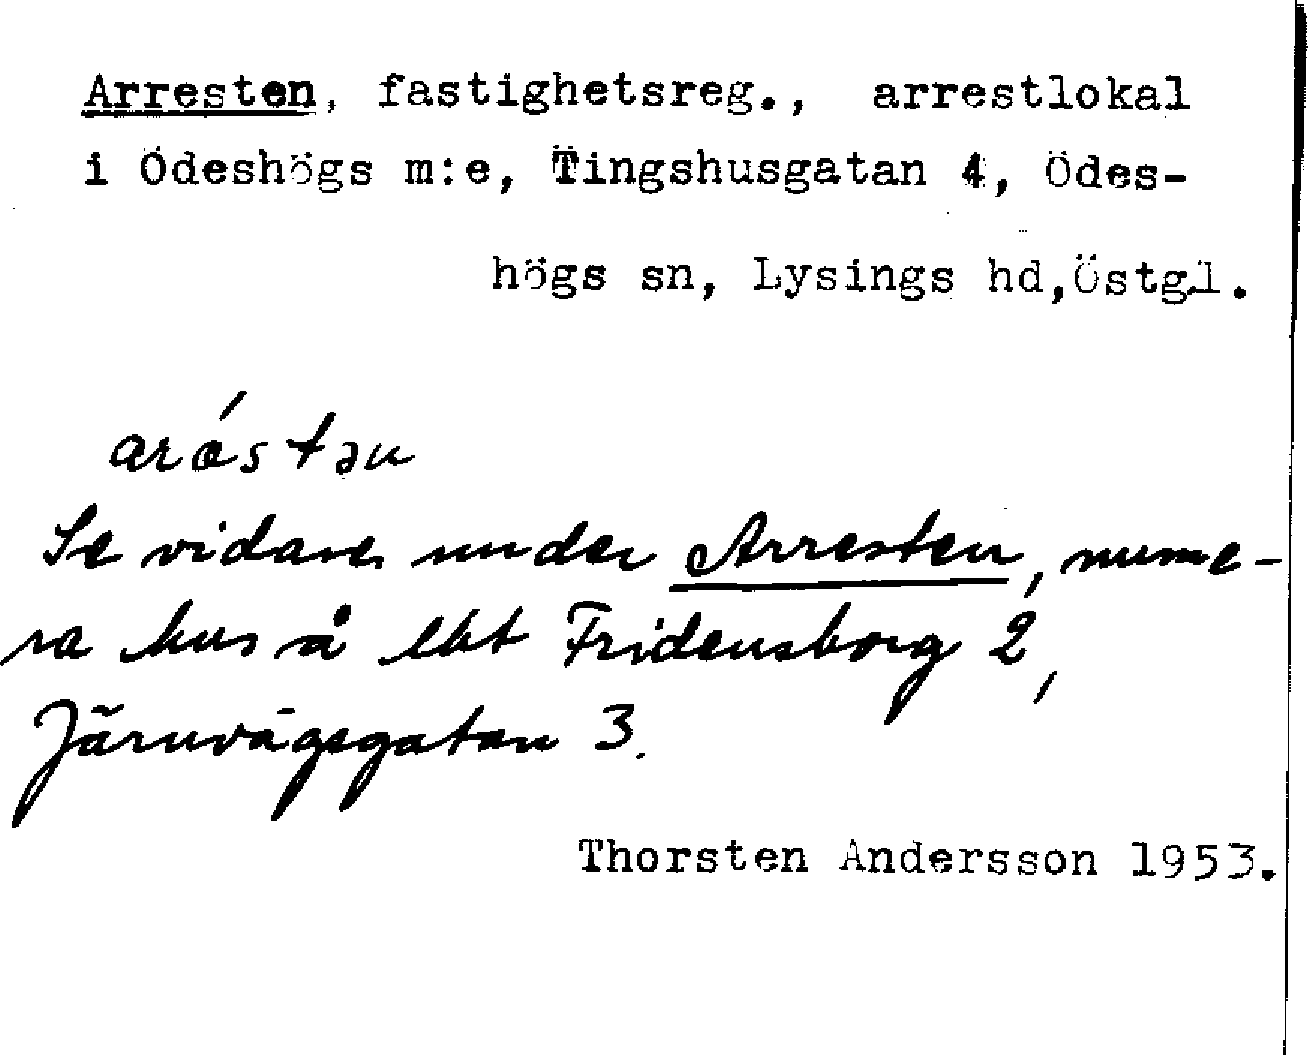 Arresten, fastighetsreg., arrestlokal
i Ödeshögs m:e, Tingshusgatan 4, Ödes-
högs sn, Lysings hd,Östgl.
aræ´stən
Se vidare under Arresten, nume-
ra hus å lht Fridensborg 2,
Järnvägsgatan 3.
Thorsten Andersson 1953.